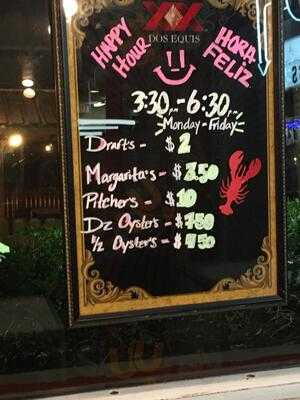 XX
DOS EQUIS
HAPPY HOUR
HORA FELIZ
3:30pm-6:30pm
Monday-Friday
Draft's - $2
Margarita's - $3.50
Pitchers - $10
Dz Oyster's - $7.50
1/2 Oyster's - $4.50